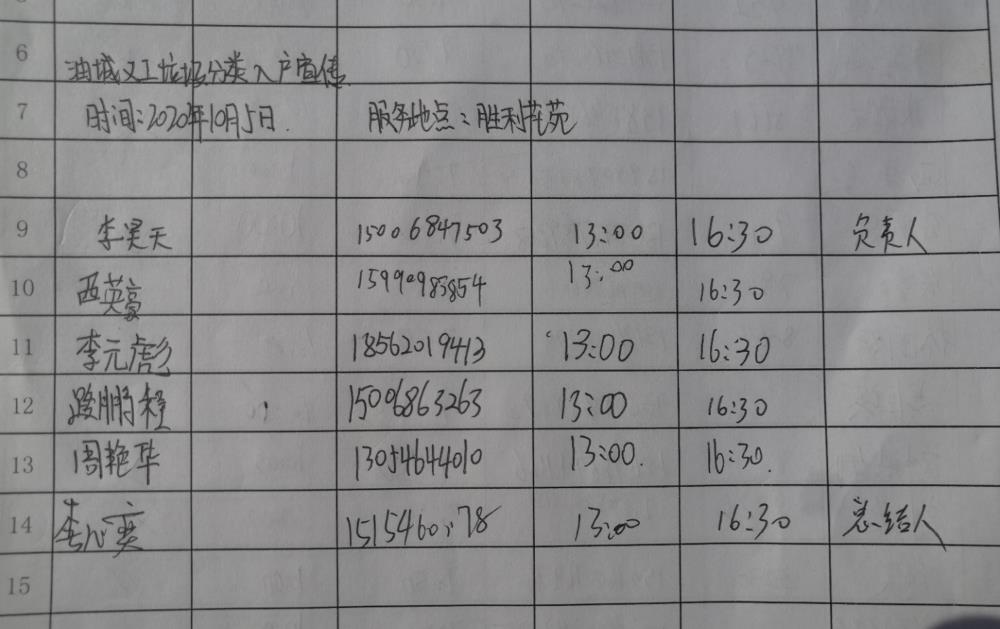 6
油城义工垃圾分类入户宣传
7 时间:2020年10月5日. 服务地点:胜利花苑
8
9 李昊天 15006847503 13:00 16:30 负责人
10 西英豪 15990985854 13:00 16:30
11 李元彪 18562019413 13:00 16:30
12 段鹏程 15006863263 13:00 16:30
13 周艳华 13054644010 13:00. 16:30.
14 李心奕 13:00 16:30 总结人
15